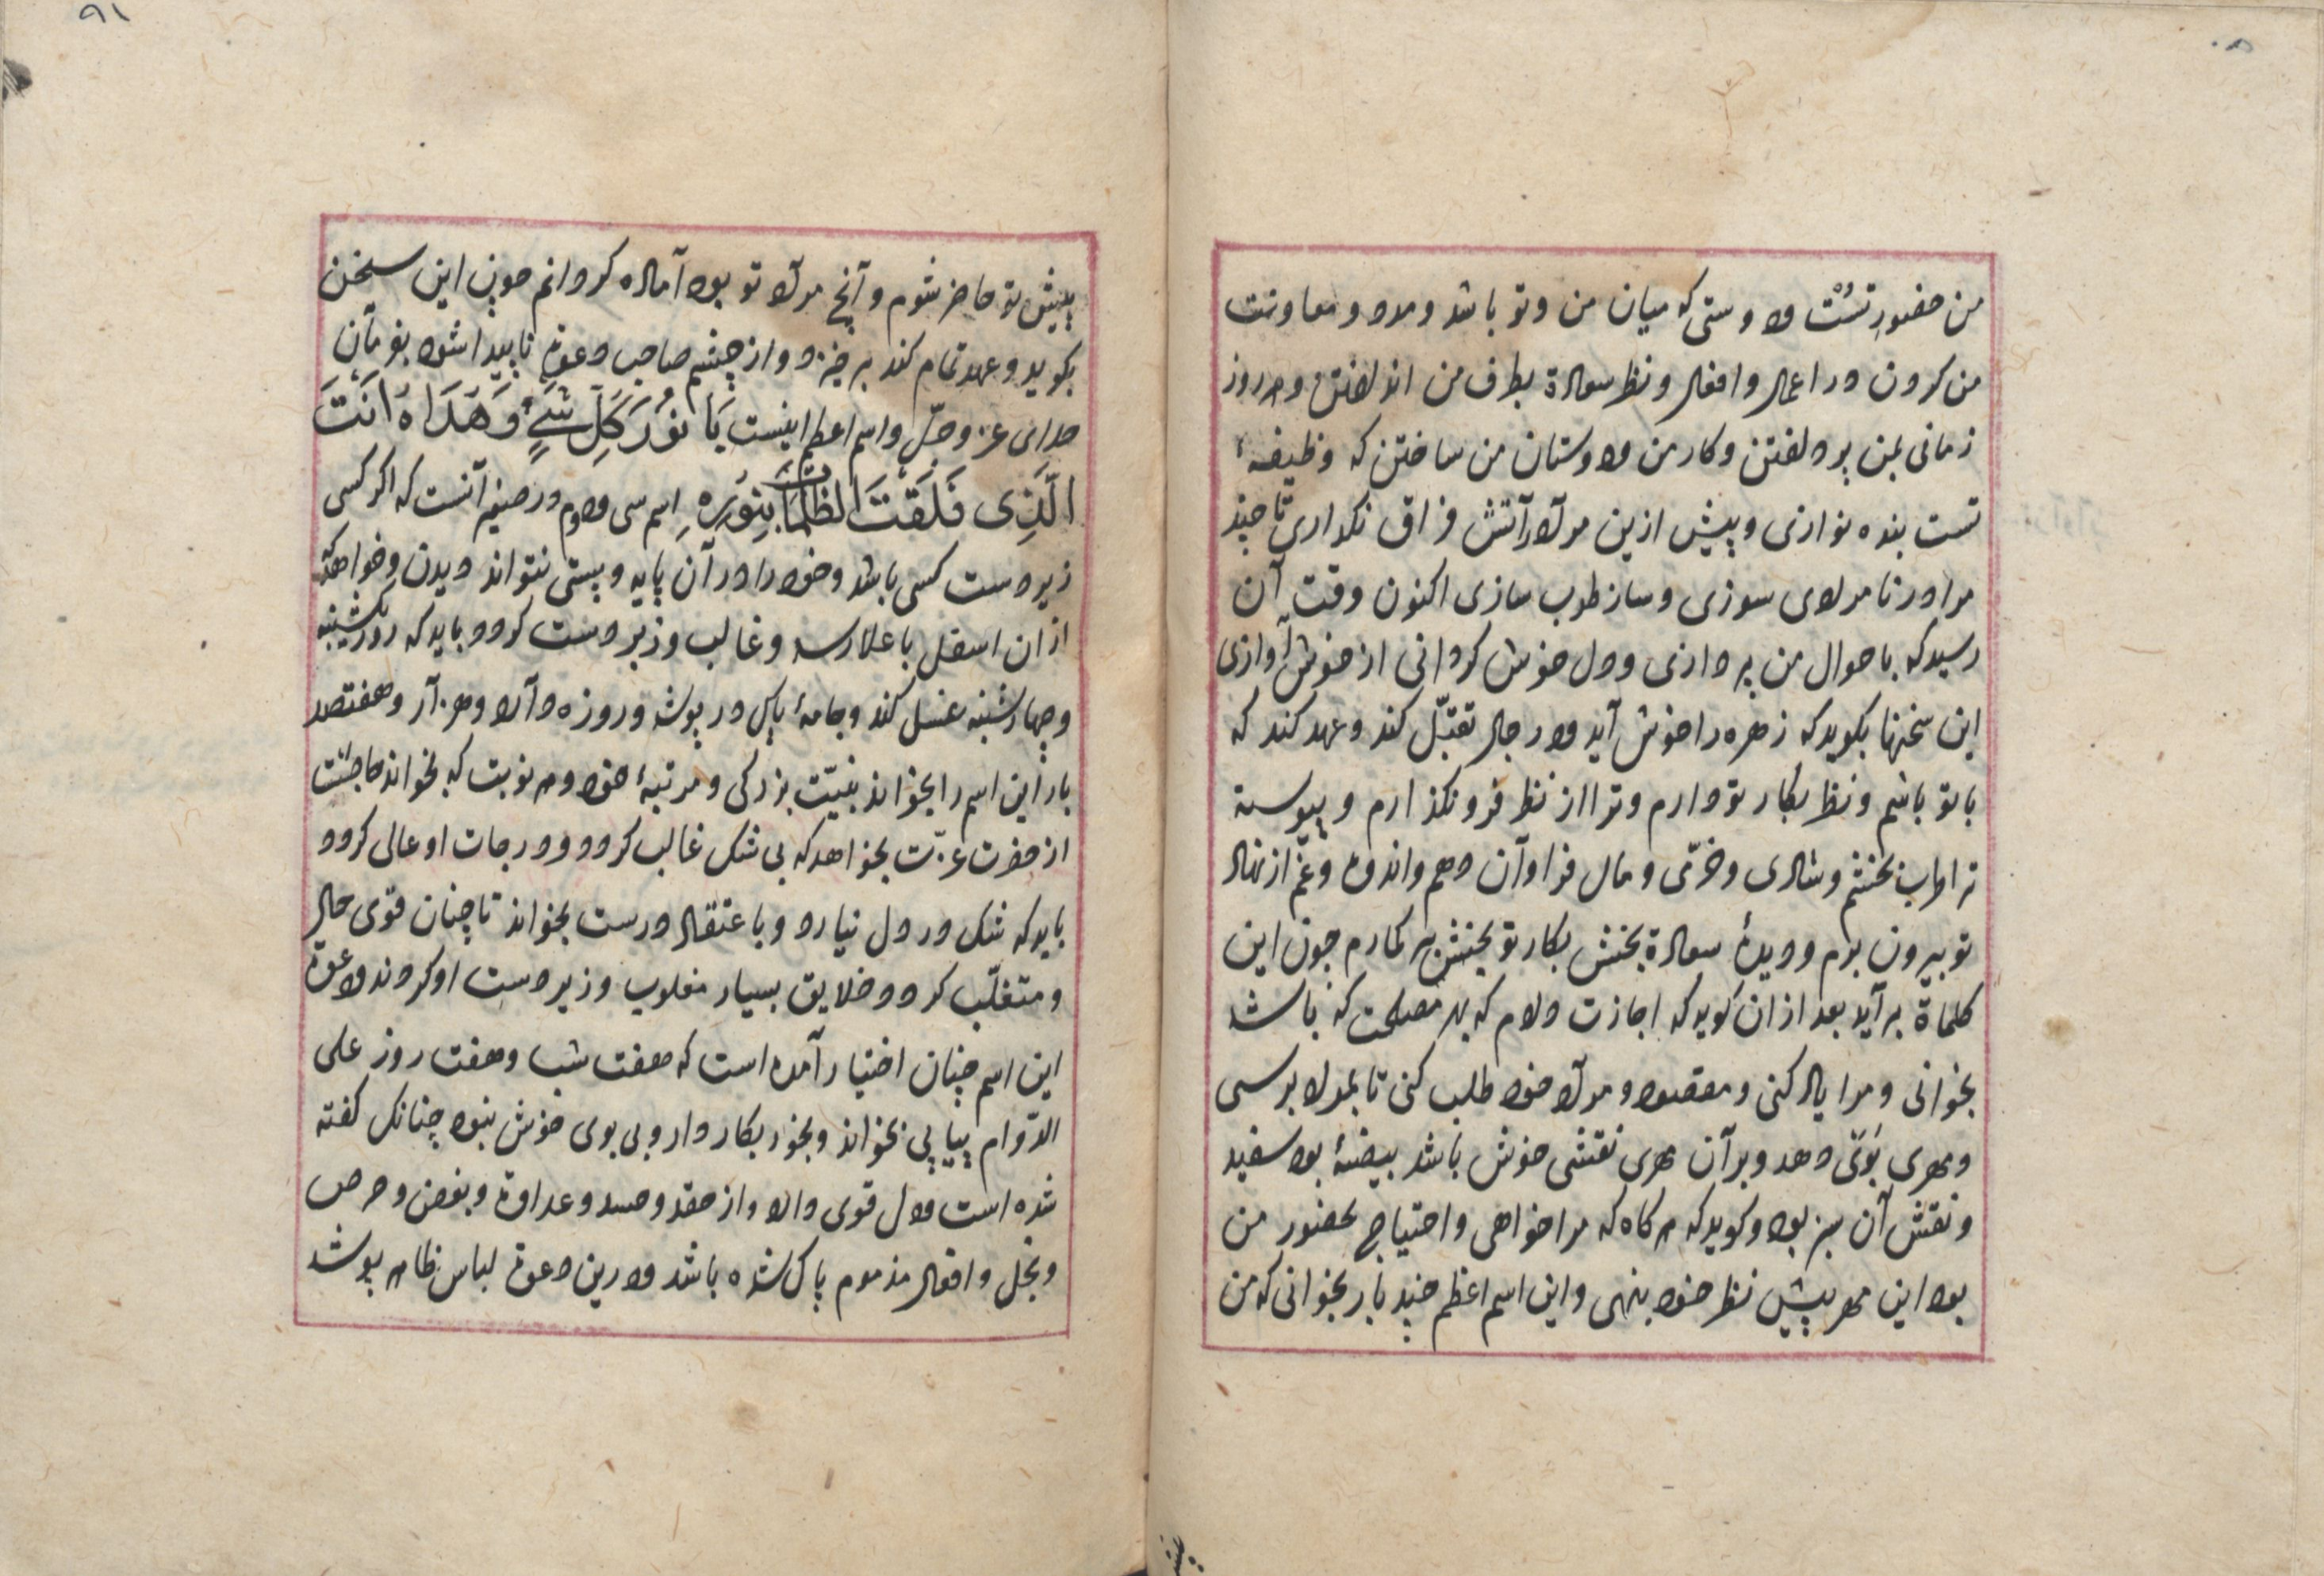 من حضور تست و دوستی که میان من و تو باشد و مدد و معاونت
من کردن در اعمال و افعال و نظر سعادة بطرف من انداختن و هر روز
زمانی بمن پرداختن و کار من و دوستان من ساختن که وظیفهٔ
تست بنده نوازی و پیش ازین مراد رآتش فراق نکداری تا چند
مرا در نامرادی سوزی و ساز طرب سازی اکنون وقت آن
رسید که باحوال من پردازی و دل خوش کردانی از خوش آوازی
این سخنها بکوید که زهره را خوش آید و در حال تقبّل کند و عهد کند که
با تو باشم و نظر بکار تو دارم و ترا از نظر فرو نکذارم و پیوسته
ترا طرب بخشم و شادی و خرّمی و مال فراوآن دهم و اندوه و غم از نهاد
تو بیرون برم و دیدهٔ سعادة بخش بکار تو بخشش بر کمارم چون این
کلماة برآید بعد ازان کوید که اجازت دادم که بهر مصلحت که باشد
بخوانی و مرا یاد کنی و مقصود و مراد خود طلب کنی تا بمراد برسی
و مهری بوی دهد و بر آن مهری نقشی خوش باشد بیضهٔ بود سفید
و نقش آن سبز بود و کوید که هر کاه که مرا خواهی و احتیاج بحضور من
بود این مهر پیش نظر خود بنهی و این اسم اعظم چند بار بخوانی که من
پیش
پیش تو حاضر شوم و آنچ مراد تو بود آماده کردانم چون این سخن
بکوید و عهد تمام کند برخیزد و از چشم صاحب دعوة ناپیدا شود بفرمان
خدای عزّ و جلّ و اسم اعظم اینست یَا نُورَ کُلِّ شَیْءٍ وَ هُدَاهُ اَنْتَ
الَّذِی فَلَقْتَ الظُلُمَاتِ بِنُورِهِ اسم سی و دوم در صفیر آنست که اکر کسی
زیر دست کسی باشد و خود را در آن پایه و پستی نتواند دیدن و خواهد که
از ان اسفل باعلا رسد و غالب و زبر دست کردد باید که روز یکشنبه
و چهارشنبه غسل کند و جامهٔ پاک در پوشد و روزه دارد و هزار و هفتصد
بار این اسم را بخواند بنیّت بزرکی و مرتبهٔ خود و هر نوبت که بخواند حاجتت
از حضرت عزّت بخواهد که بی شک غالب کردد و درجات او عالی کردد
باید که شک در دل نیارد و باعتقاد درست بخواند تا چنان قوی حال
و متغلّب کردد و خلایق بسیار مغلوب و زیر دست او کردند و دعوة
این اسم چنان اختیار آمده است که هفت شب و هفت روز علی
الدّوام پیاپی بخواند و بخور بکار دارد بی بوی خوش نبود چنانک کفته
شده است و دل قوی دارد و از حقد و حسد و عداوة و بغض و حرص
و بخل و افعال مذموم پاک شده باشد و درین دعوة لباس ظاهر پوشد